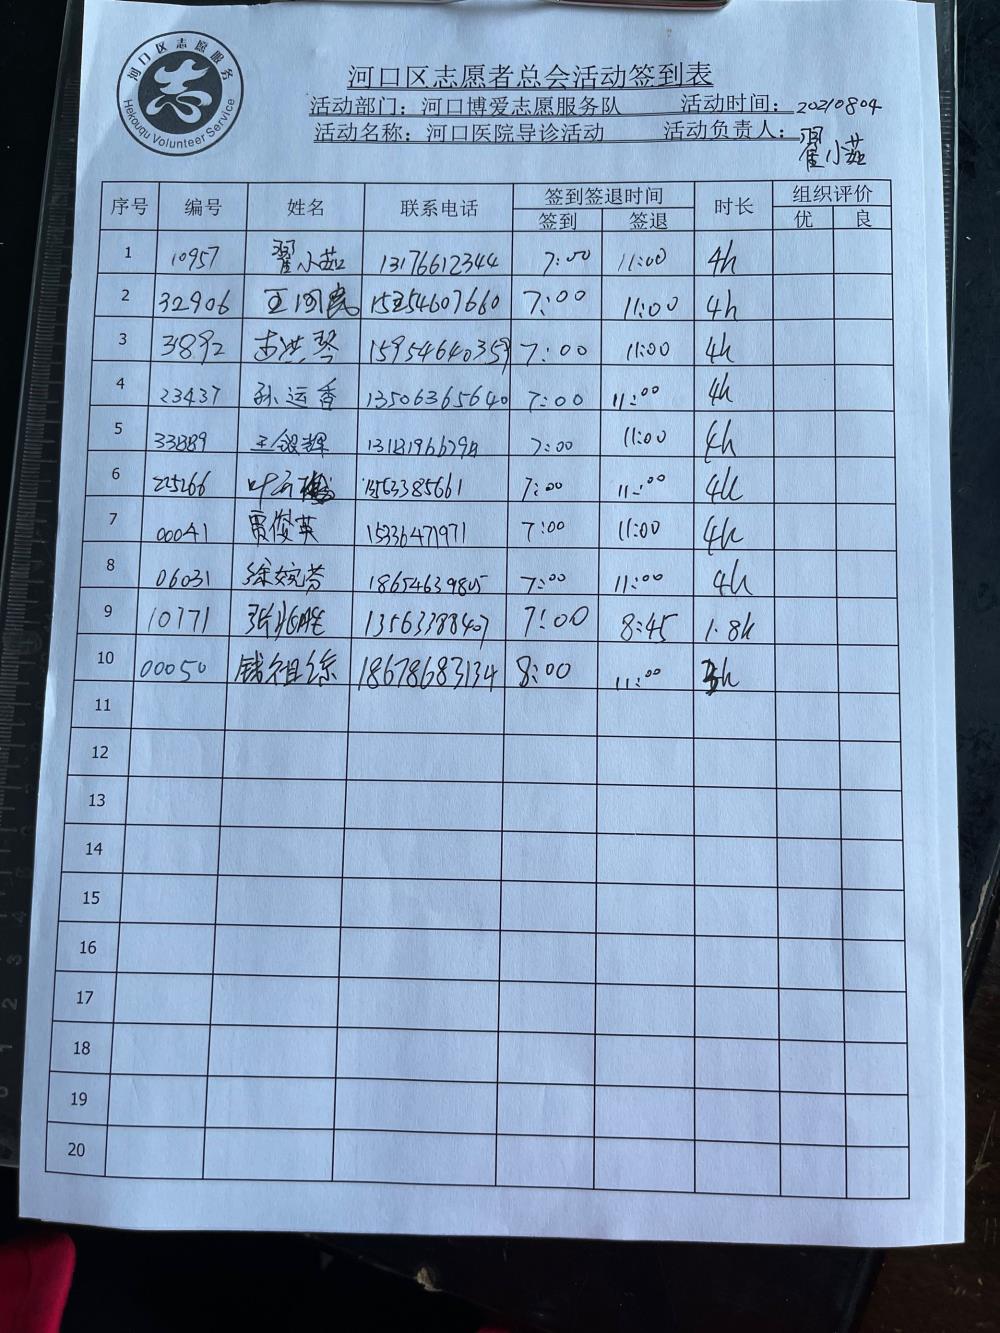 河口区志愿服务
Hekouqu Volunteer Service
河口区志愿者总会活动签到表
活动部门：河口博爱志愿服务队 活动时间：20210804
活动名称：河口医院导诊活动 活动负责人：翟小茹
序号 编号 姓名 联系电话 签到签退时间 时长 组织评价
签到 签退 优 良
1 10957 翟小茹 13176612344 7:00 11:00 4h
2 32906 王河民 15254607660 7:00 11:00 4h
3 31892 洪琴 15954640359 7:00 11:00 4h
4 23437 孙运香 13506365640 7:00 11:00 4h
5 王银辉 7:00 11:00 4h
6 叶 13563385661 7:00 11:00 4h
7 00041 贾俊英 15336471971 7:00 11:00 4h
8 06031 徐婉芬 18654639805 7:00 11:00 4h
9 10771 张 13563388407 7:00 8:45 1.8h
10 00050 钱祖 18678683134 8:00 11:00 3h
11
12
13
14
15
16
17
18
19
20